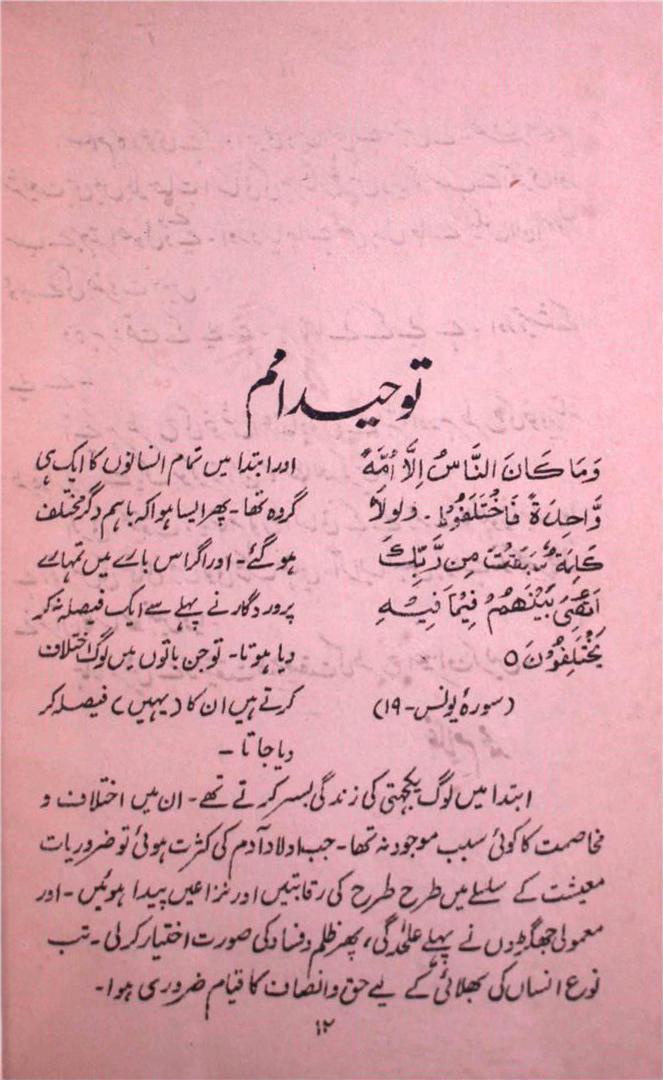 توحیدِ امم
وَمَا كَانَ النَّاسُ اِلَّا اُمَّةً
وَّاحِدَةً فَاخْتَلَفُوْا ط وَلَوْلَا
كَلِمَةٌ سَبَقَتْ مِنْ رَّبِّكَ
لَقُضِیَ بَيْنَهُمْ فِيْمَا فِيْهِ
يَخْتَلِفُوْنَ ۝
(سورۂ یونس - ۱۹)
اور ابتدا میں تمام انسانوں کا ایک ہی
گروہ تھا۔ پھر ایسا ہوا کہ باہم دگر مختلف
ہو گئے۔ اور اگر اس بارے میں تمہارے
پروردگار نے پہلے سے ایک فیصلہ نہ کر
دیا ہوتا۔ تو جن باتوں میں لوگ اختلاف
کرتے ہیں ان کا (یہیں) فیصلہ کر
دیا جاتا۔
ابتدا میں لوگ یکجہتی کی زندگی بسر کرتے تھے۔ ان میں اختلاف و
مخاصمت کا کوئی سبب موجود نہ تھا۔ جب اولاد آدم کی کثرت ہوئی تو ضروریات
معیشت کے سلسلے میں طرح طرح کی رقابتیں اور نزاعیں پیدا ہوئیں۔ اور
معمولی جھگڑوں نے پہلے علٰحدگی، پھر ظلم و فساد کی صورت اختیار کر لی۔ تب
نوع انساں کی بھلائی کے لیے حق و انصاف کا قیام ضروری ہوا۔
۱۲